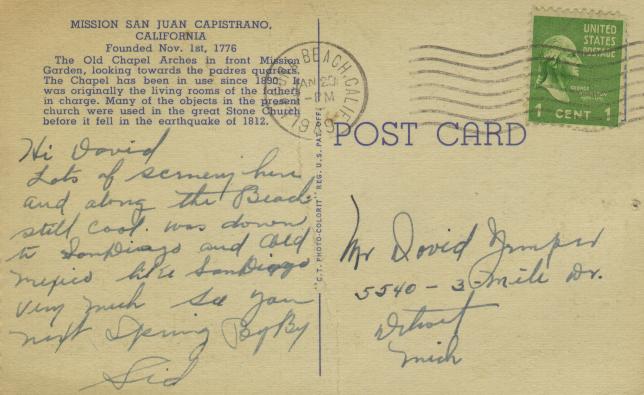 MISSION SAN JUAN CAPISTRANO,
CALIFORNIA
Founded Nov. 1st, 1776
The Old Chapel Arches in front Mission
Garden, looking towards the padres quarters.
The Chapel has been in use since 1890. It
was originally the living rooms of the fathers
in charge. Many of the objects in the present
church were used in the great Stone Church
before it fell in the earthquake of 1812.
Hi David
Lots of scenery here
and along the Beach
still cool. was down
to SanDiago and Old
Mexico like SanDiago
very much see you
next Spring By By
Sid
BEACH, CALIF.
JAN 20
PM
1949
"C.T. PHOTO-COLORIT" REG. U.S. PAT. OFF.
POST CARD
UNITED
STATES
POSTAGE
1 CENT 1
Mr David
5540 - 3 - Mile Dr.
Detroit
Mich